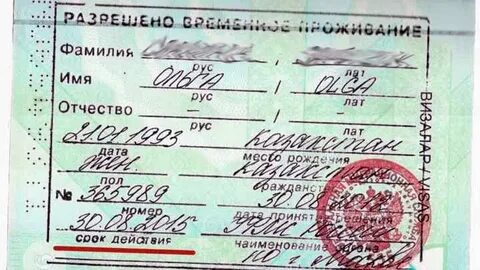 РАЗРЕШЕНО ВРЕМЕННОЕ ПРОЖИВАНИЕ
Фамилия / 
рус лат
Имя ОЛЬГА / OLGA
рус лат
Отчество – / –
рус лат
21.01.1993 КАЗАХСТАН
дата место рождения
жен. КАЗАХСТАН
пол гражданство
№ 365989 30.08.2012
номер дата принятия решения
30.08.2015
срок действия наименование органа
по г. Москве
ВИЗАЛАР/VISAS